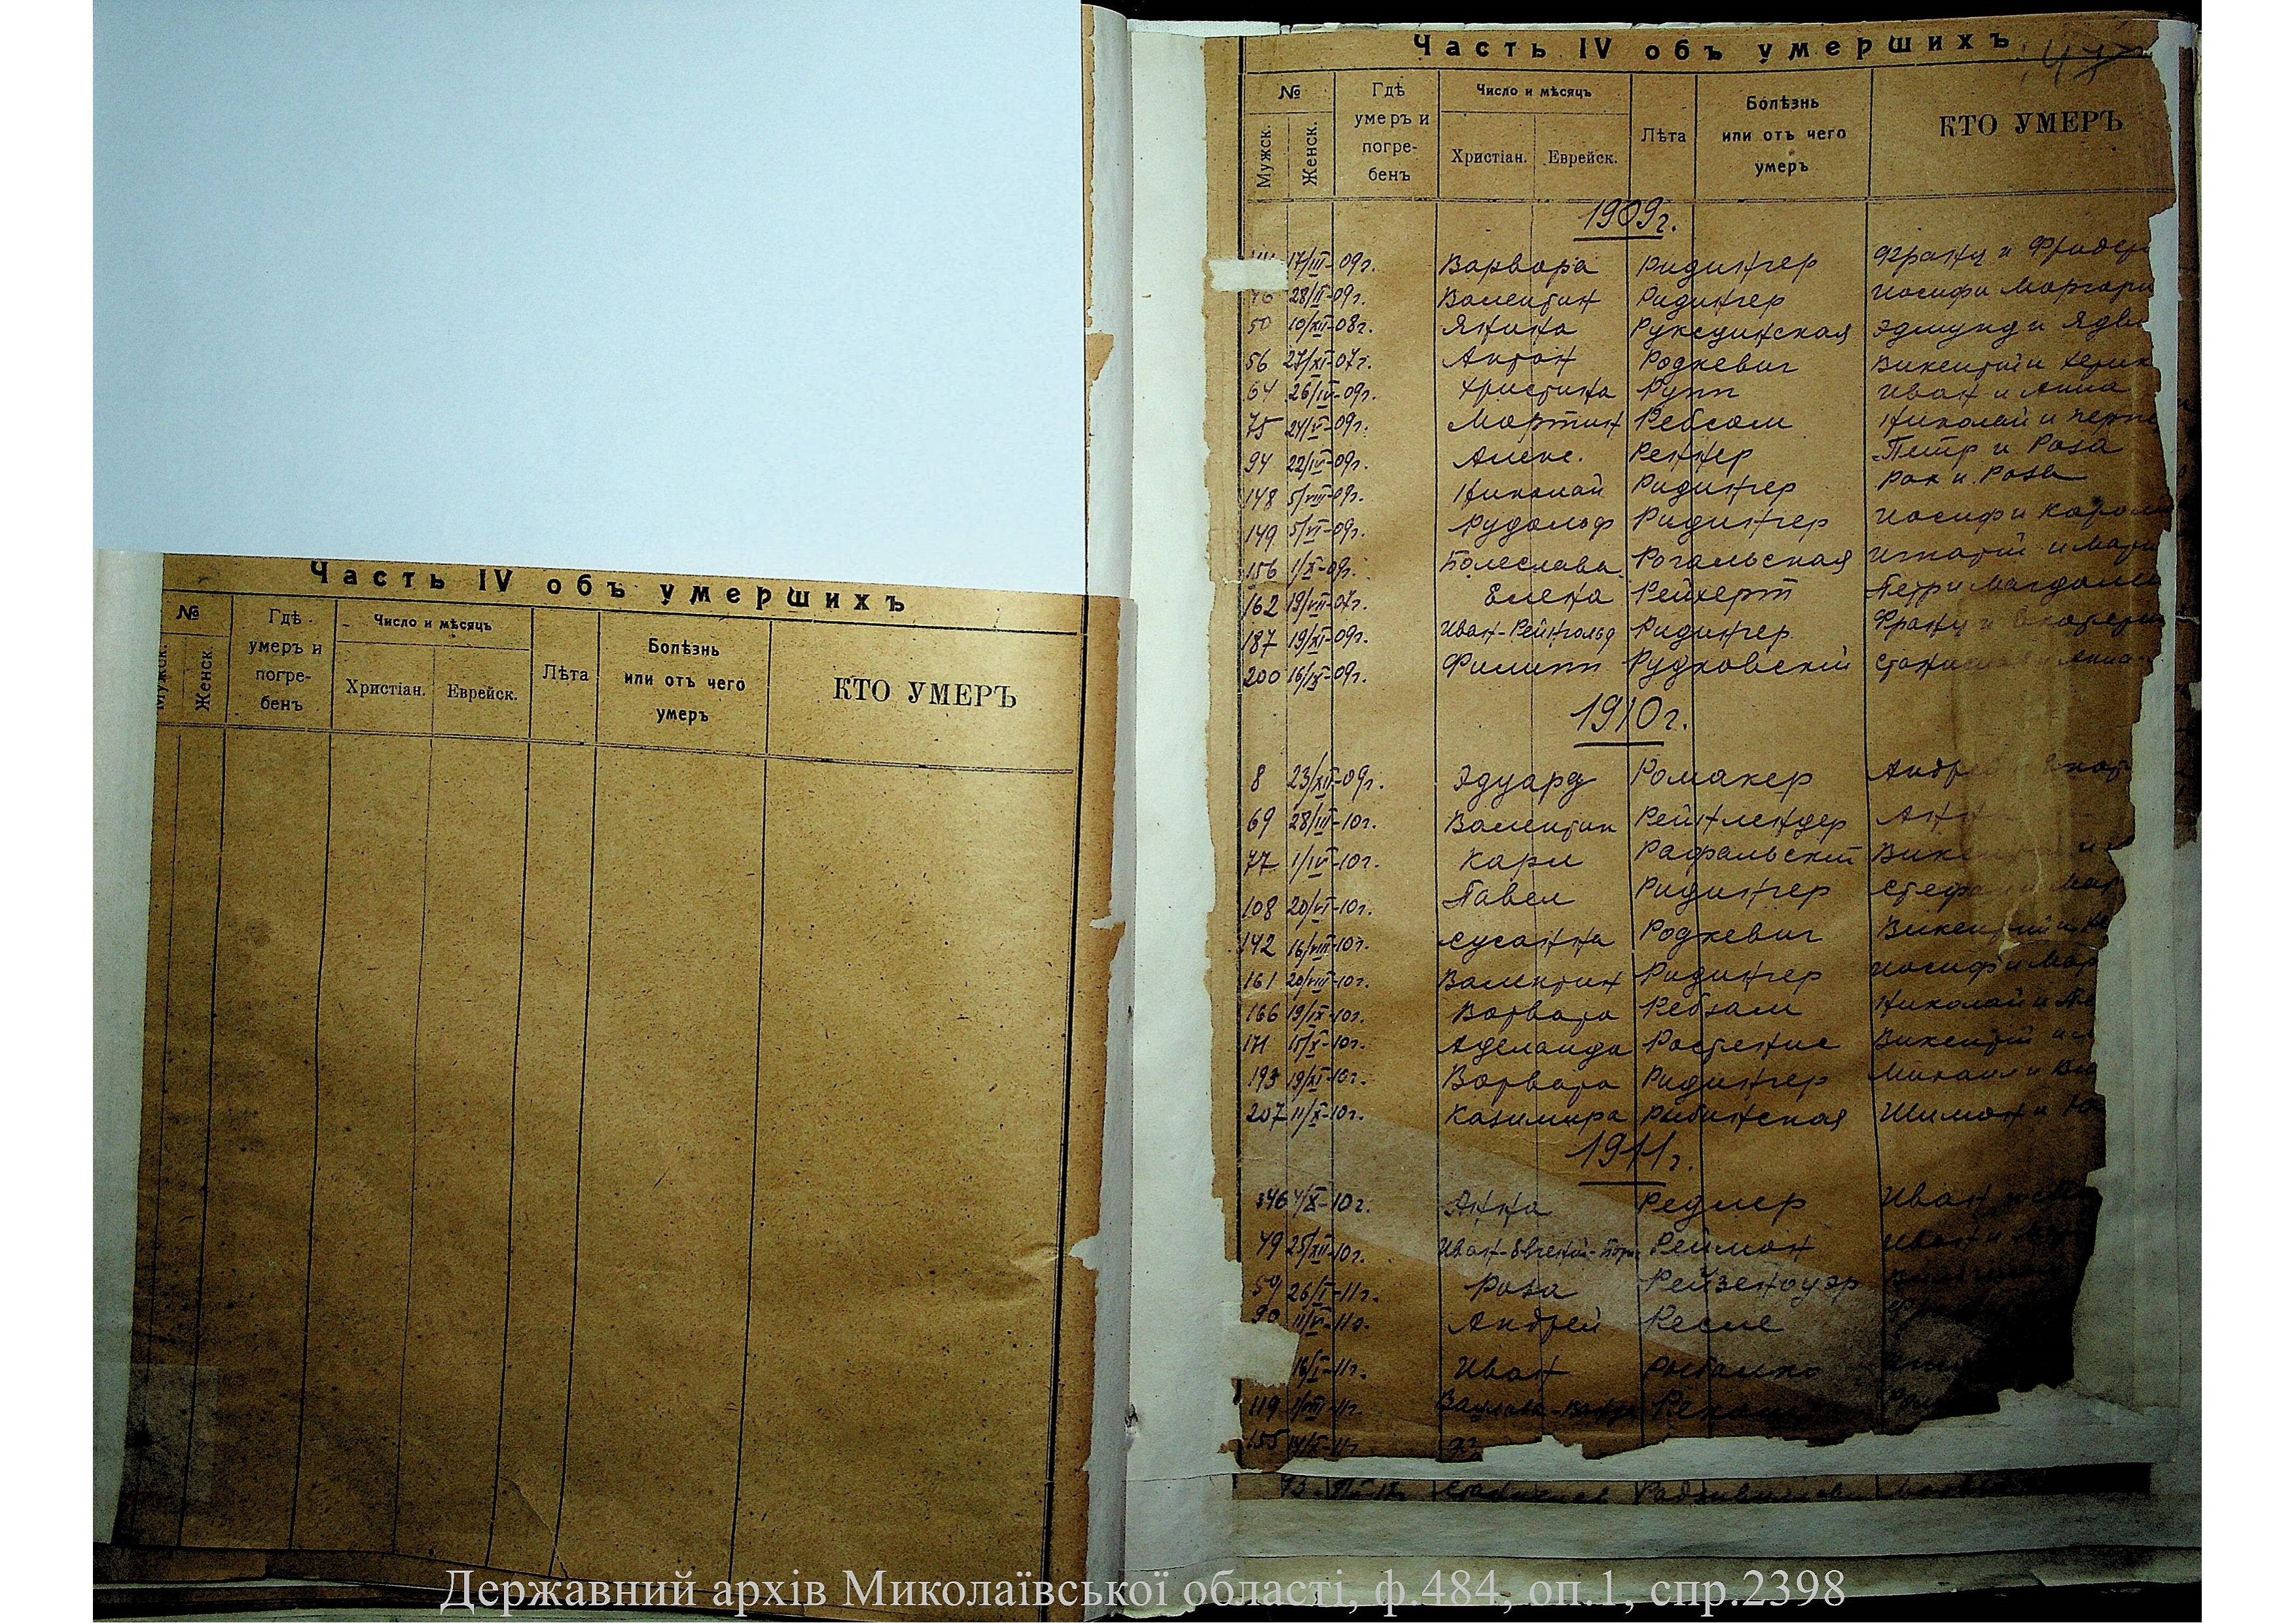 Часть IV объ умершихъ
№
Мужск.
Женск.
Гдѣ умеръ и погре-бенъ
Число и мѣсяцъ
Христіан.
Еврейск.
Лѣта
Болѣзнь или отъ чего умеръ
КТО УМЕРЪ
Часть IV объ умершихъ
№
Мужск.
Женск.
Гдѣ умеръ и погре-бенъ
Число и мѣсяцъ
Христіан.
Еврейск.
Лѣта
Болѣзнь или отъ чего умеръ
КТО УМЕРЪ
1909г.
17/III-09г. Варвара Ридингер Франц и Фридер
46 28/II-09г. Валентин Ридингер Иосиф и Маргари
50 10/XII-08г. Янина Эдмунд и Ядви
56 27/XI-07г. Антон Родкевич Викентий и
64 26/IV-09г. Христина Рупп Иван и Анна
75 24/V-09г. Мартин Ребсам Николай и
94 22/IV-09г. Алекс. Реннер Петр и Роза
148 5/VIII-09г. Николай Ридингер Рох и Роза
149 5/VI-09г. Рудольф Ридингер Иосиф и Кароли
156 1/X-09г. Болеслава Рогальская Игнатий и Мари
162 19/VII-07г. Елена Рейхерт Петр и Магдале
187 19/XI-09г. Иван-Рейнгольд Ридингер Франц и Екатери
200 16/IX-09г. Филипп Рудковский Станислав и Анна
1910г.
8 23/XII-09г. Эдуард Ромакер Андрей Екат
69 28/III-10г. Валентин Рейнлендер Ант
77 1/IV-10г. Карл Рафальский Вике и
108 20/VI-10г. Павел Ридингер Стефан и Мар
142 16/VIII-10г. Сусанна Родкевич Викентий и
161 20/VIII-10г. Валентин Ридингер Иосиф и Мар
166 19/IX-10г. Варвара Ребзам Николай и Пе
171 15/X-10г. Аделаида Викентий и
193 19/XI-10г. Варвара Ридингер Михаил и
207 11/X-10г. Казимира Рыбинская Шимон и
1911г.
4/X-10г. Анна Редлер Иван и
49 25/XII-10г. Иван-Евгений- Реймон Иван и
59 26/I-11г. Роза Рейзенауэр
90 11/VI-11г. Андрей Ресле
16/I-11г. Иван Рыбалко
119
155
Державний архів Миколаївської області, ф.484, оп.1, спр.2398